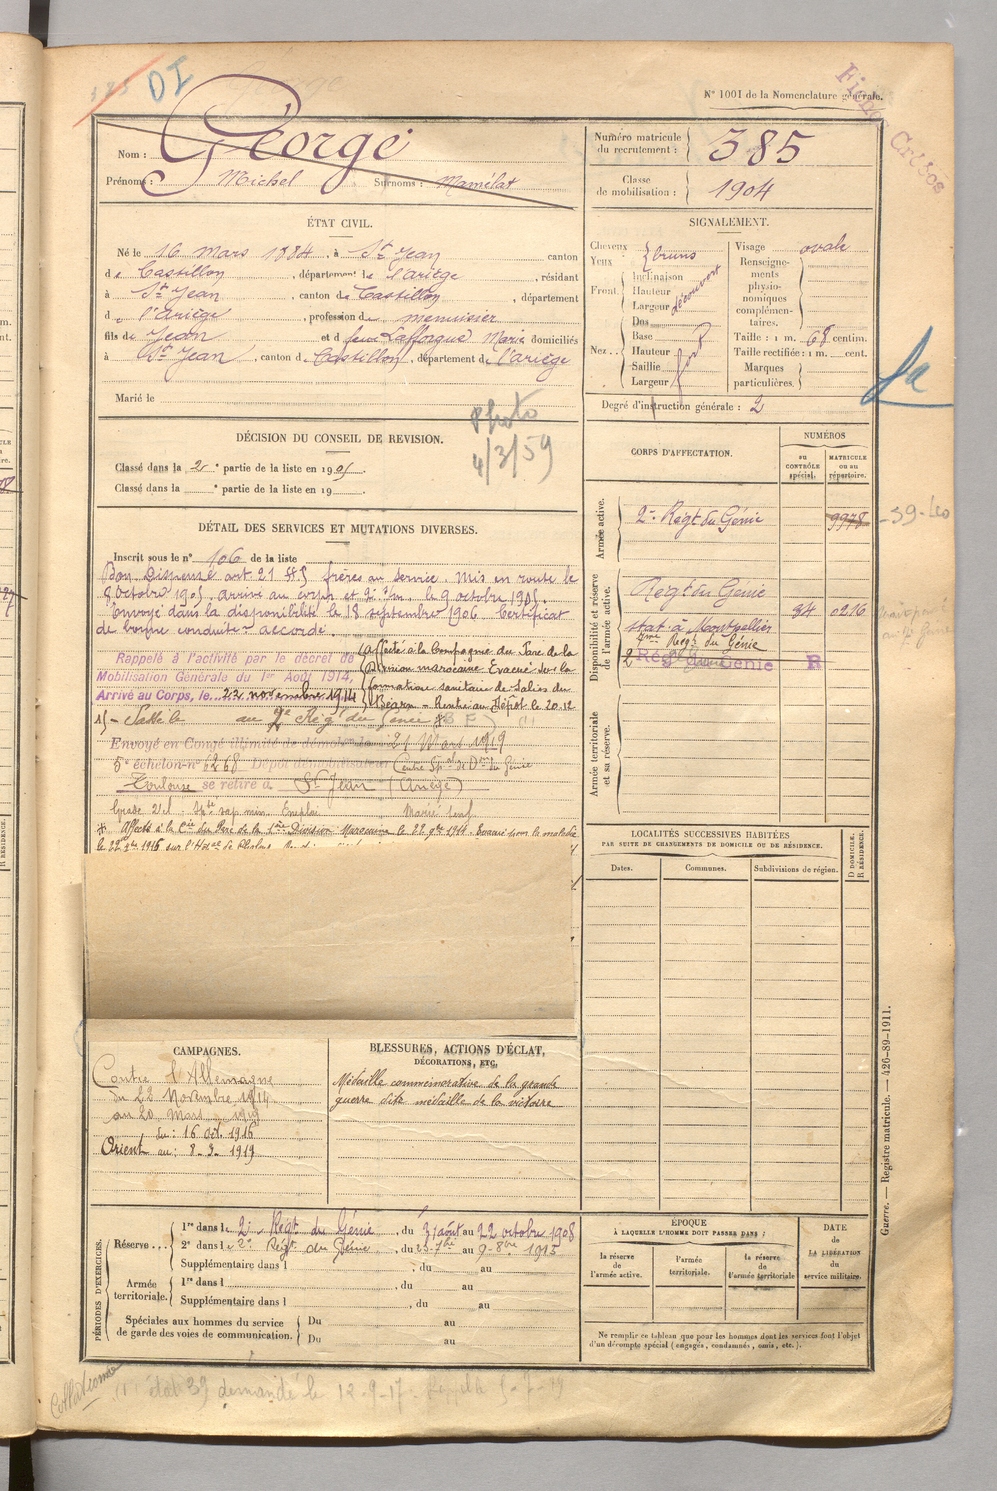 125 DI
N° 1001 de la Nomenclature générale.
Fiche
Nom : George
Prénoms : Michel Surnoms : Mamélat
Numéro matricule du recrutement : 385
Classe de mobilisation : 1904
ÉTAT CIVIL.
Né le 16 Mars 1884, à St Jean canton
de Castillon, département de l'Ariège, résidant
à St Jean, canton de Castillon, département
d l'Ariège, profession de menuisier
fils de Jean et de feue Lafforgue Marie domiciliés
à St Jean, canton de Castillon, département de l'ariège
Marié le
SIGNALEMENT.
Cheveux
Yeux bruns
Front. Inclinaison
Hauteur
Largeur découvert
Nez... Dos
Base
Hauteur
Saillie
Largeur fort
Visage ovale
Renseignements physionomiques complémentaires.
Taille : 1 m. 68 centim.
Taille rectifiée : 1 m. cent.
Marques particulières.
Degré d'instruction générale : 2
Photo
4/3/59
DÉCISION DU CONSEIL DE REVISION.
Classé dans la 2e partie de la liste en 1905.
Classé dans la e partie de la liste en 19
DÉTAIL DES SERVICES ET MUTATIONS DIVERSES.
Inscrit sous le n° 106 de la liste
Bon. Dispensé art. 21 frères au service. Mis en route le
8 octobre 1905, arrivé au corps et 2e le 9 octobre 1905.
Envoyé dans la disponibilité le 18 septembre 1906. Certificat
de bonne conduite accordé.
Rappelé à l'activité par le décret de
Mobilisation Générale du 1er Août 1914,
Arrivé au Corps, le 22 novembre 1914
Affecté à la Compagnie du Parc de la
Division marocaine Evacué sur la
formation sanitaire de Salies du
Béarn - Rentré au Dépôt le 20.12
15 - Passé le au 2e Rég. du Génie
Envoyé en Congé illimité de démob 21 Mars 1919
5e échelon n° 6268 Dépôt démobilisateur Centre Sp. de D du Génie
Toulouse se retire à St Jean (Ariège)
Grade sap. min. Emploi Marié
Affecté à la Cie du Parc de la 1ère Division Marocaine le 22 9bre 1914. Evacué pour la maladie
CORPS D'AFFECTATION.
NUMÉROS
au CONTRÔLE spécial.
MATRICULE ou au répertoire.
Armée active.
2e Régt du Génie 9978
-39-
Disponibilité et réserve de l'armée active.
Régt du Génie
stat à Montpellier 34 0216
7me Régt du Génie
2 Rég du Génie R
Armée territoriale et sa réserve.
LOCALITÉS SUCCESSIVES HABITÉES
PAR SUITE DE CHANGEMENTS DE DOMICILE OU DE RÉSIDENCE.
Dates. Communes. Subdivisions de région. D DOMICILE. R RÉSIDENCE.
CAMPAGNES.
Contre l'Allemagne
du 22 Novembre 1914
au 20 Mars 1919
Orient du : 16 oct. 1916
au : 8-3-1919
BLESSURES, ACTIONS D'ÉCLAT,
DÉCORATIONS, ETC.
Médaille commémorative de la grande
guerre dite médaille de la victoire
PÉRIODES D'EXERCICES.
Réserve... 1re dans l 2e Régt du Génie, du 31 août au 22 octobre 1908
2e dans l 2e Régt du Génie, du 23 7bre au 9-8bre 1913
Supplémentaire dans l , du au
Armée territoriale. 1re dans l , du au
Supplémentaire dans l , du au
Spéciales aux hommes du service de garde des voies de communication. Du au
Du au
ÉPOQUE
À LAQUELLE L'HOMME DOIT PASSER DANS :
la réserve de l'armée active.
l'armée territoriale.
la réserve de l'armée territoriale
DATE DE LA LIBÉRATION du service militaire.
Ne remplir ce tableau que pour les hommes dont les services font l'objet
d'un décompte spécial (engagés, condamnés, omis, etc.).
Guerre. — Registre matricule. — 426-89-1911.
Collationné
(1) état 39 demandé le 12-9-17. Rappelé